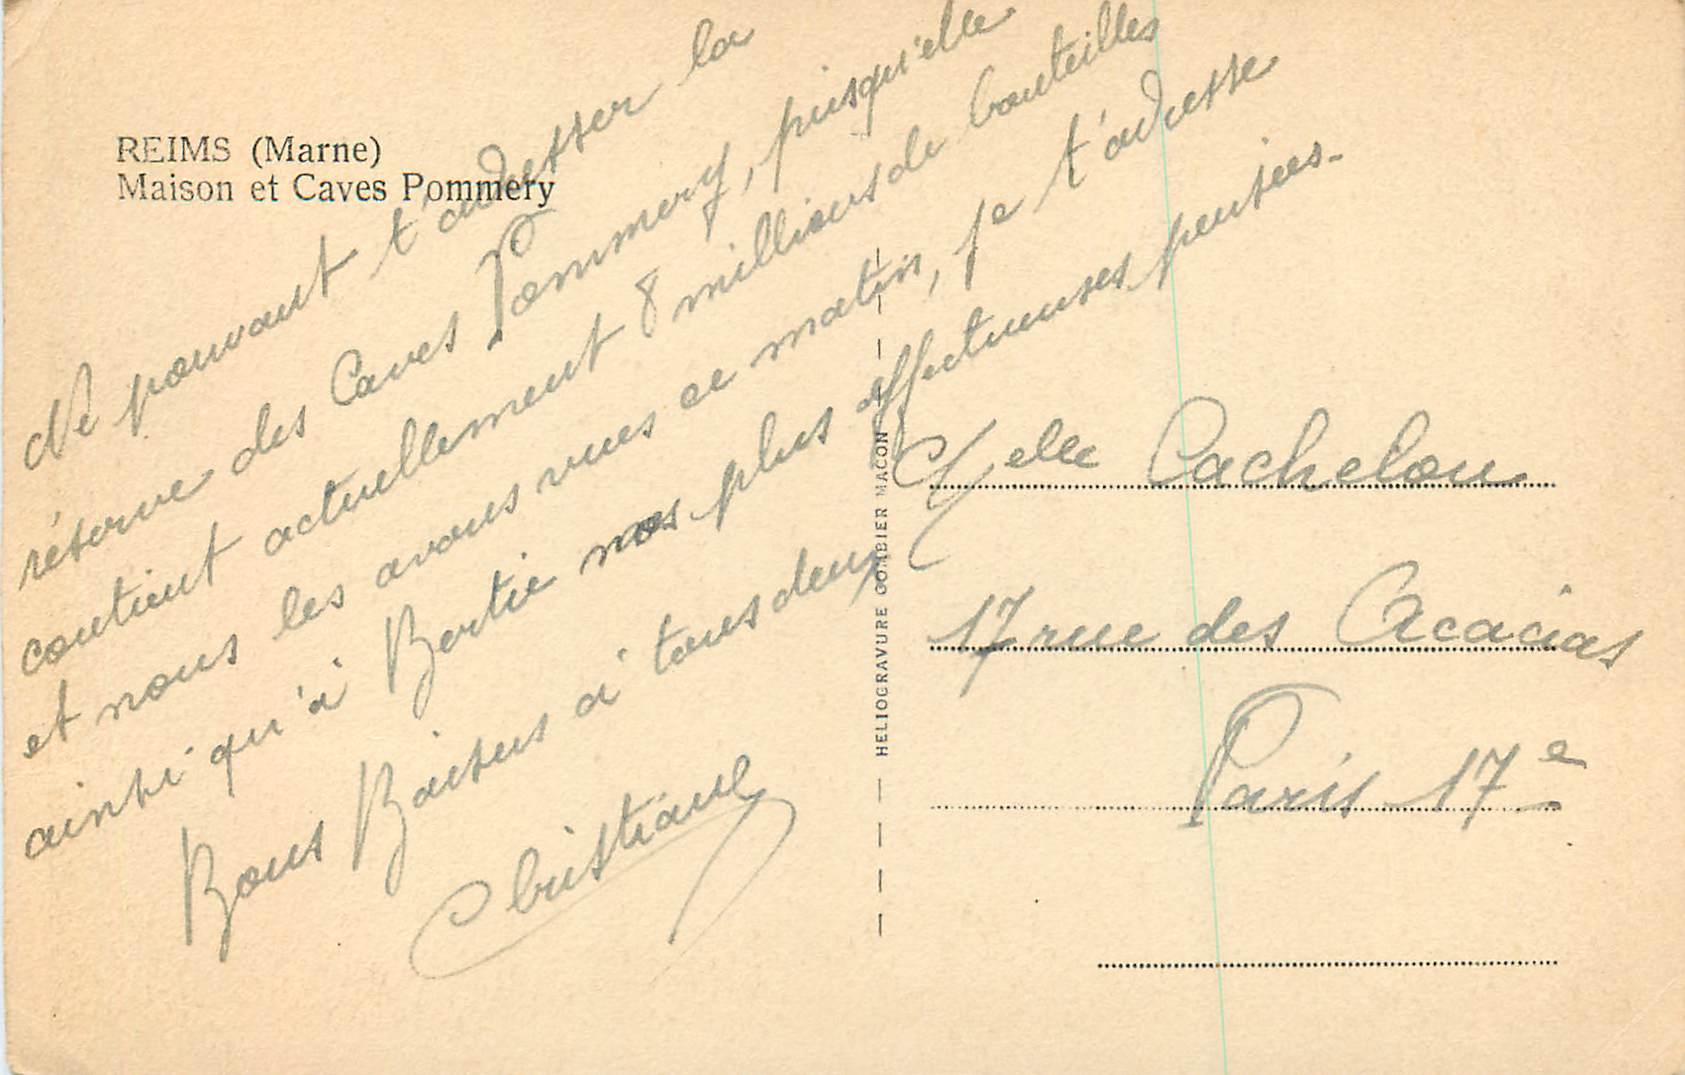 REIMS (Marne)
Maison et Caves Pommery
Ne pouvant t'adresser la
réserve des Caves Pommery, puisqu'elle
contient actuellement 8 millions de bouteilles
et nous les avons vues ce matin, je t'adresse
ainsi qu'à Bertie nos plus affectueuses pensées.
Bons Baisers à tous deux
Christiane
HELIOGRAVURE COMBIER MACON
Melle Cachelou
17 rue des Acacias
Paris 17e